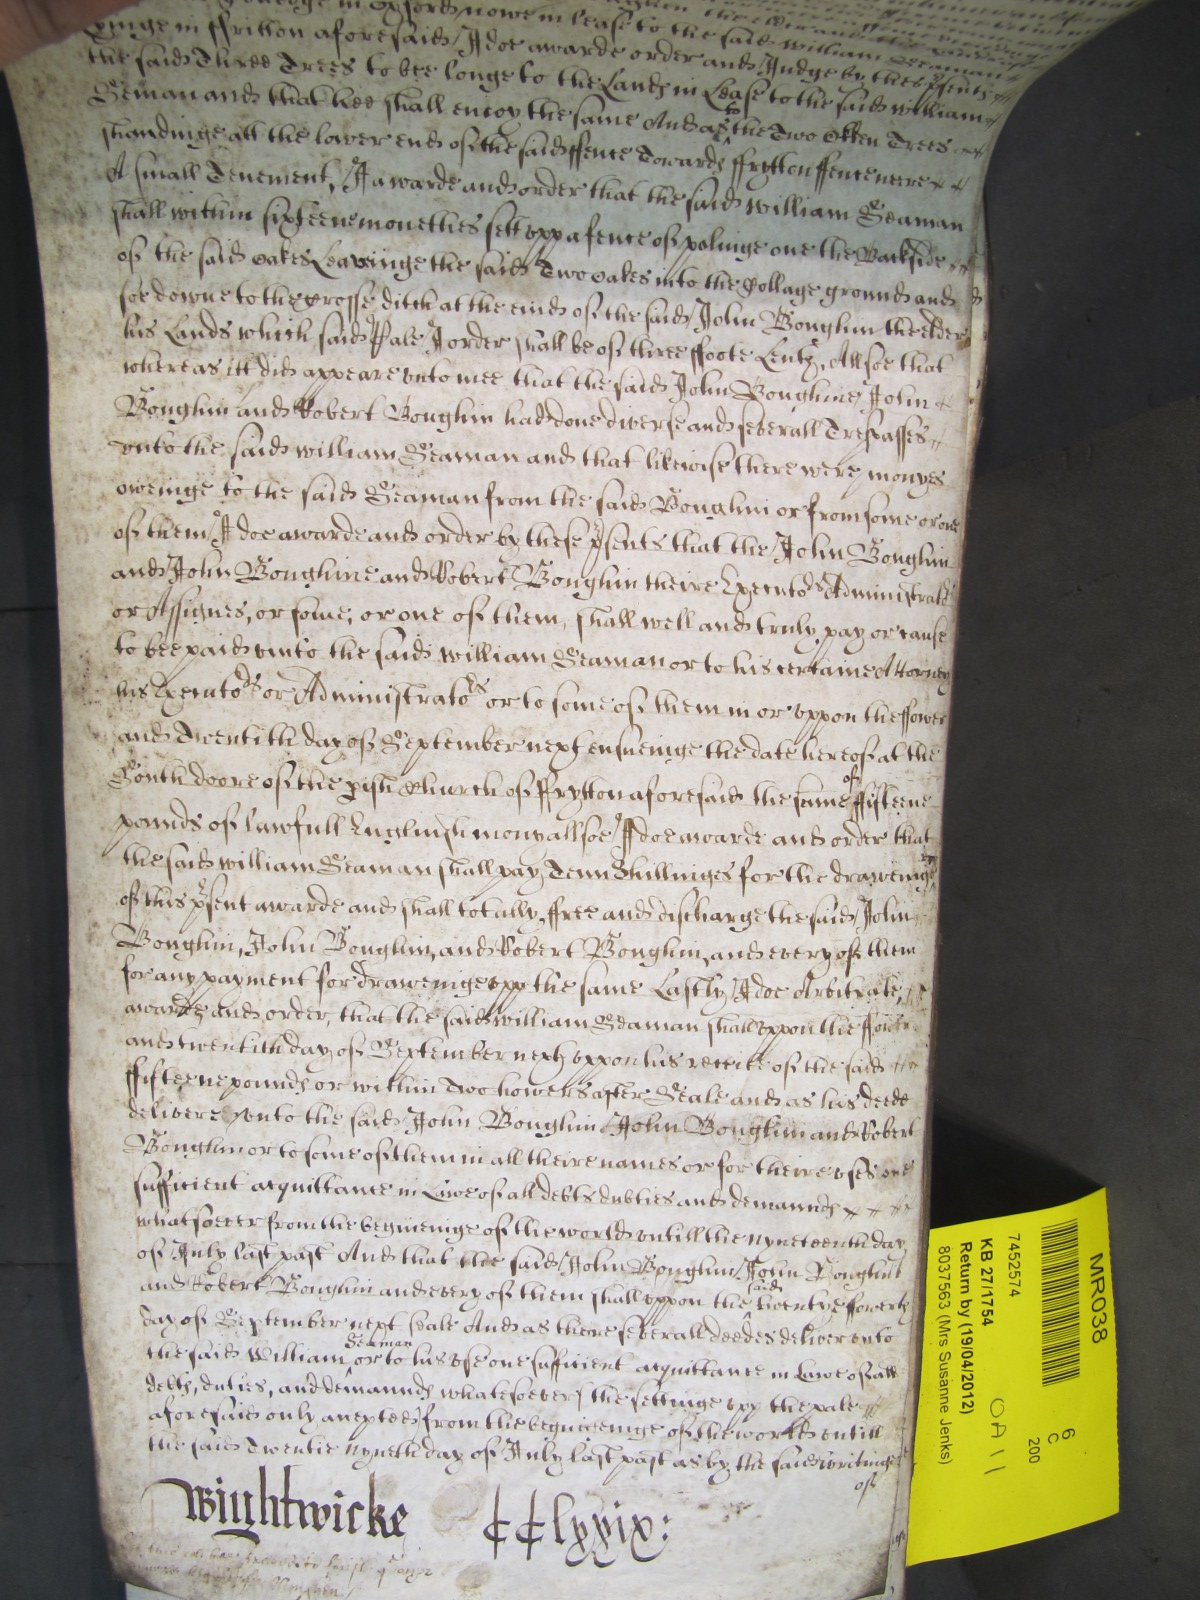 in Oxford nowe in lease to the said William Seaman
in ffritton aforesaid I doe awarde order and Judge by these psents
the said Three Trees to bee longe to the Land in Lease to the said William
Seman and that hee shall enioy the same And as to the Two Okken Trees
standinge att the lower end of the said ffence Towards ffrytton ffence neere
A small Tenement, I awarde and order that the said William Seaman
shall within sixteene monethes sett upp a fence of palinge one the Backside
of the said oakes Leavinge the said Two oakes into the Collage ground and
soe downe to the crosse ditch at the eend of the said John Bonghin the elder
his Lands which said Pale I order shall be of three ffoote Lentg, Allsoe that
whereas itt did appeare unto mee that the said John Bonghine John
Bonghin and Robert Bonghin had done diverse and severall Trespasses
unto the said William Seaman and that likewise there were monyes
oweinge to the said Seaman from the said Bonghin or from some or one
of them, I doe awarde and order by these psents that the John Bonghin
and John Bonghine and Robert Bonghin theire Executors Administrators
or Assignes, or some, or one of them, shall well and truly pay or cause
to bee paid unto the said William Seaman or to his certaine Attorney
his Executors or Administrators or to some of them in or uppon the ffower
and Twentith day of September next ensueinge the date hereof at the
South doore of the pish Church of ffrytton aforesaid the same of ffifteene
pounds of lawfull Englinsh mony allsoe I doe awarde and order that
the said William Seaman shall pay Tenn Shillinges for the draweinge upp
of this psent awarde and shall totally ffree and discharge the said John
Bonghin, John Bonghin, and Robert Bonghin, and every of them
for any payment for draweinge upp the same Lastly I doe Arbitrate,
awarde and order, that the said William Seaman shall uppon the ffower
and twentith day of September next uppon his receite of the said
ffifteene pounds or within Two howers after Seale and as his deede
delivere unto the said John Bonghin John Bonghin and Robert
Bonghin or to some of them in all theire names or for theire uses one
sufficient acquittance in Lawe of all debts duties and demaunds
whatsoever from the begineinge of the world untill the nyneteenth day
of July last past And that the said John Bonghin John Bonghin
and Robert Bonghin and every of them shall uppon the said twentye fowerth
day of September next seale And as theire severall deedes deliver unto
the said William Seaman or to his use one sufficient acquittance in Lawe of all
debts, duties, and demaunds whatesoever the settinge upp the pale
aforesaid only axcepted from the begineinge of the world untill
the said Twentie nyneth day of July last past as by the said writinge
of
Wightwicke CClxxix:
MR038
6
C
200
7452574
KB 27/1754
Return by (19/04/2012)
8037563 (Mrs Susanne Jenks)